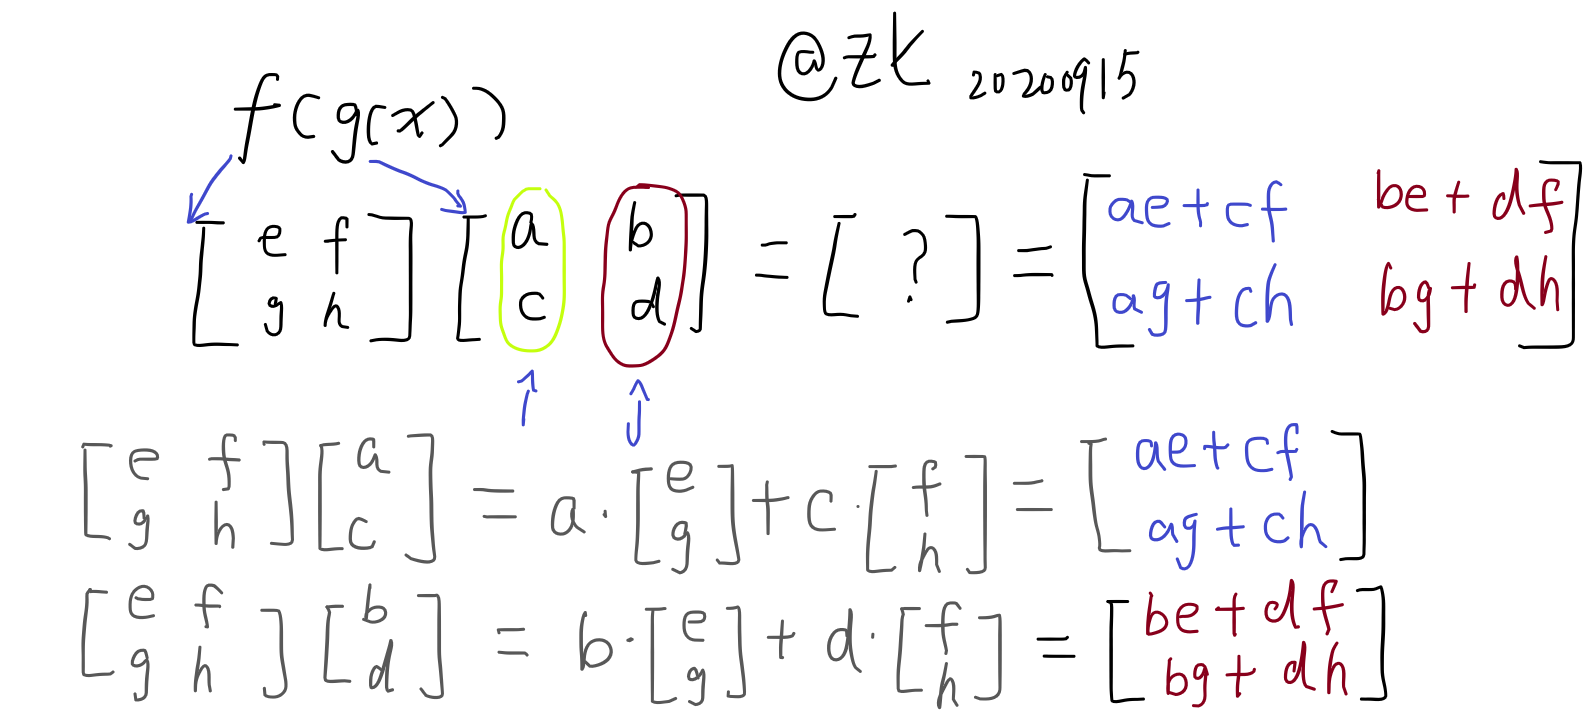 @zk 20200915
f(g(x))
[e f; g h] [a b; c d] = [ ? ] = [ae+cf be+df; ag+ch bg+dh]
[e f; g h] [a; c] = a·[e; g] + c·[f; h] = [ae+cf; ag+ch]
[e f; g h] [b; d] = b·[e; g] + d·[f; h] = [be+df; bg+dh]